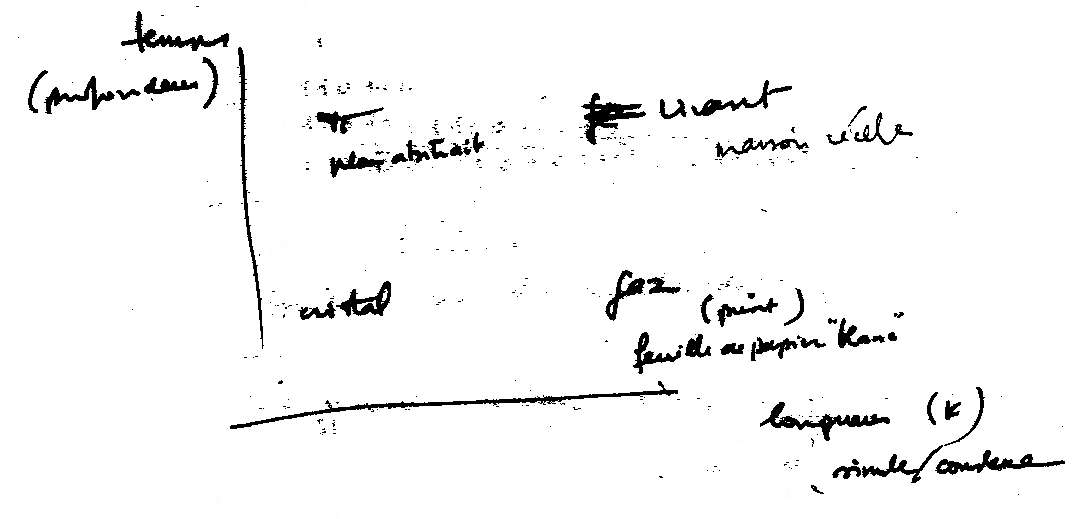 temps
(profondeur)
vivant
plan abstrait
maison réelle
cristal
gaz
(print)
feuille de papier "blanc"
longueur (K)
simple/complexe